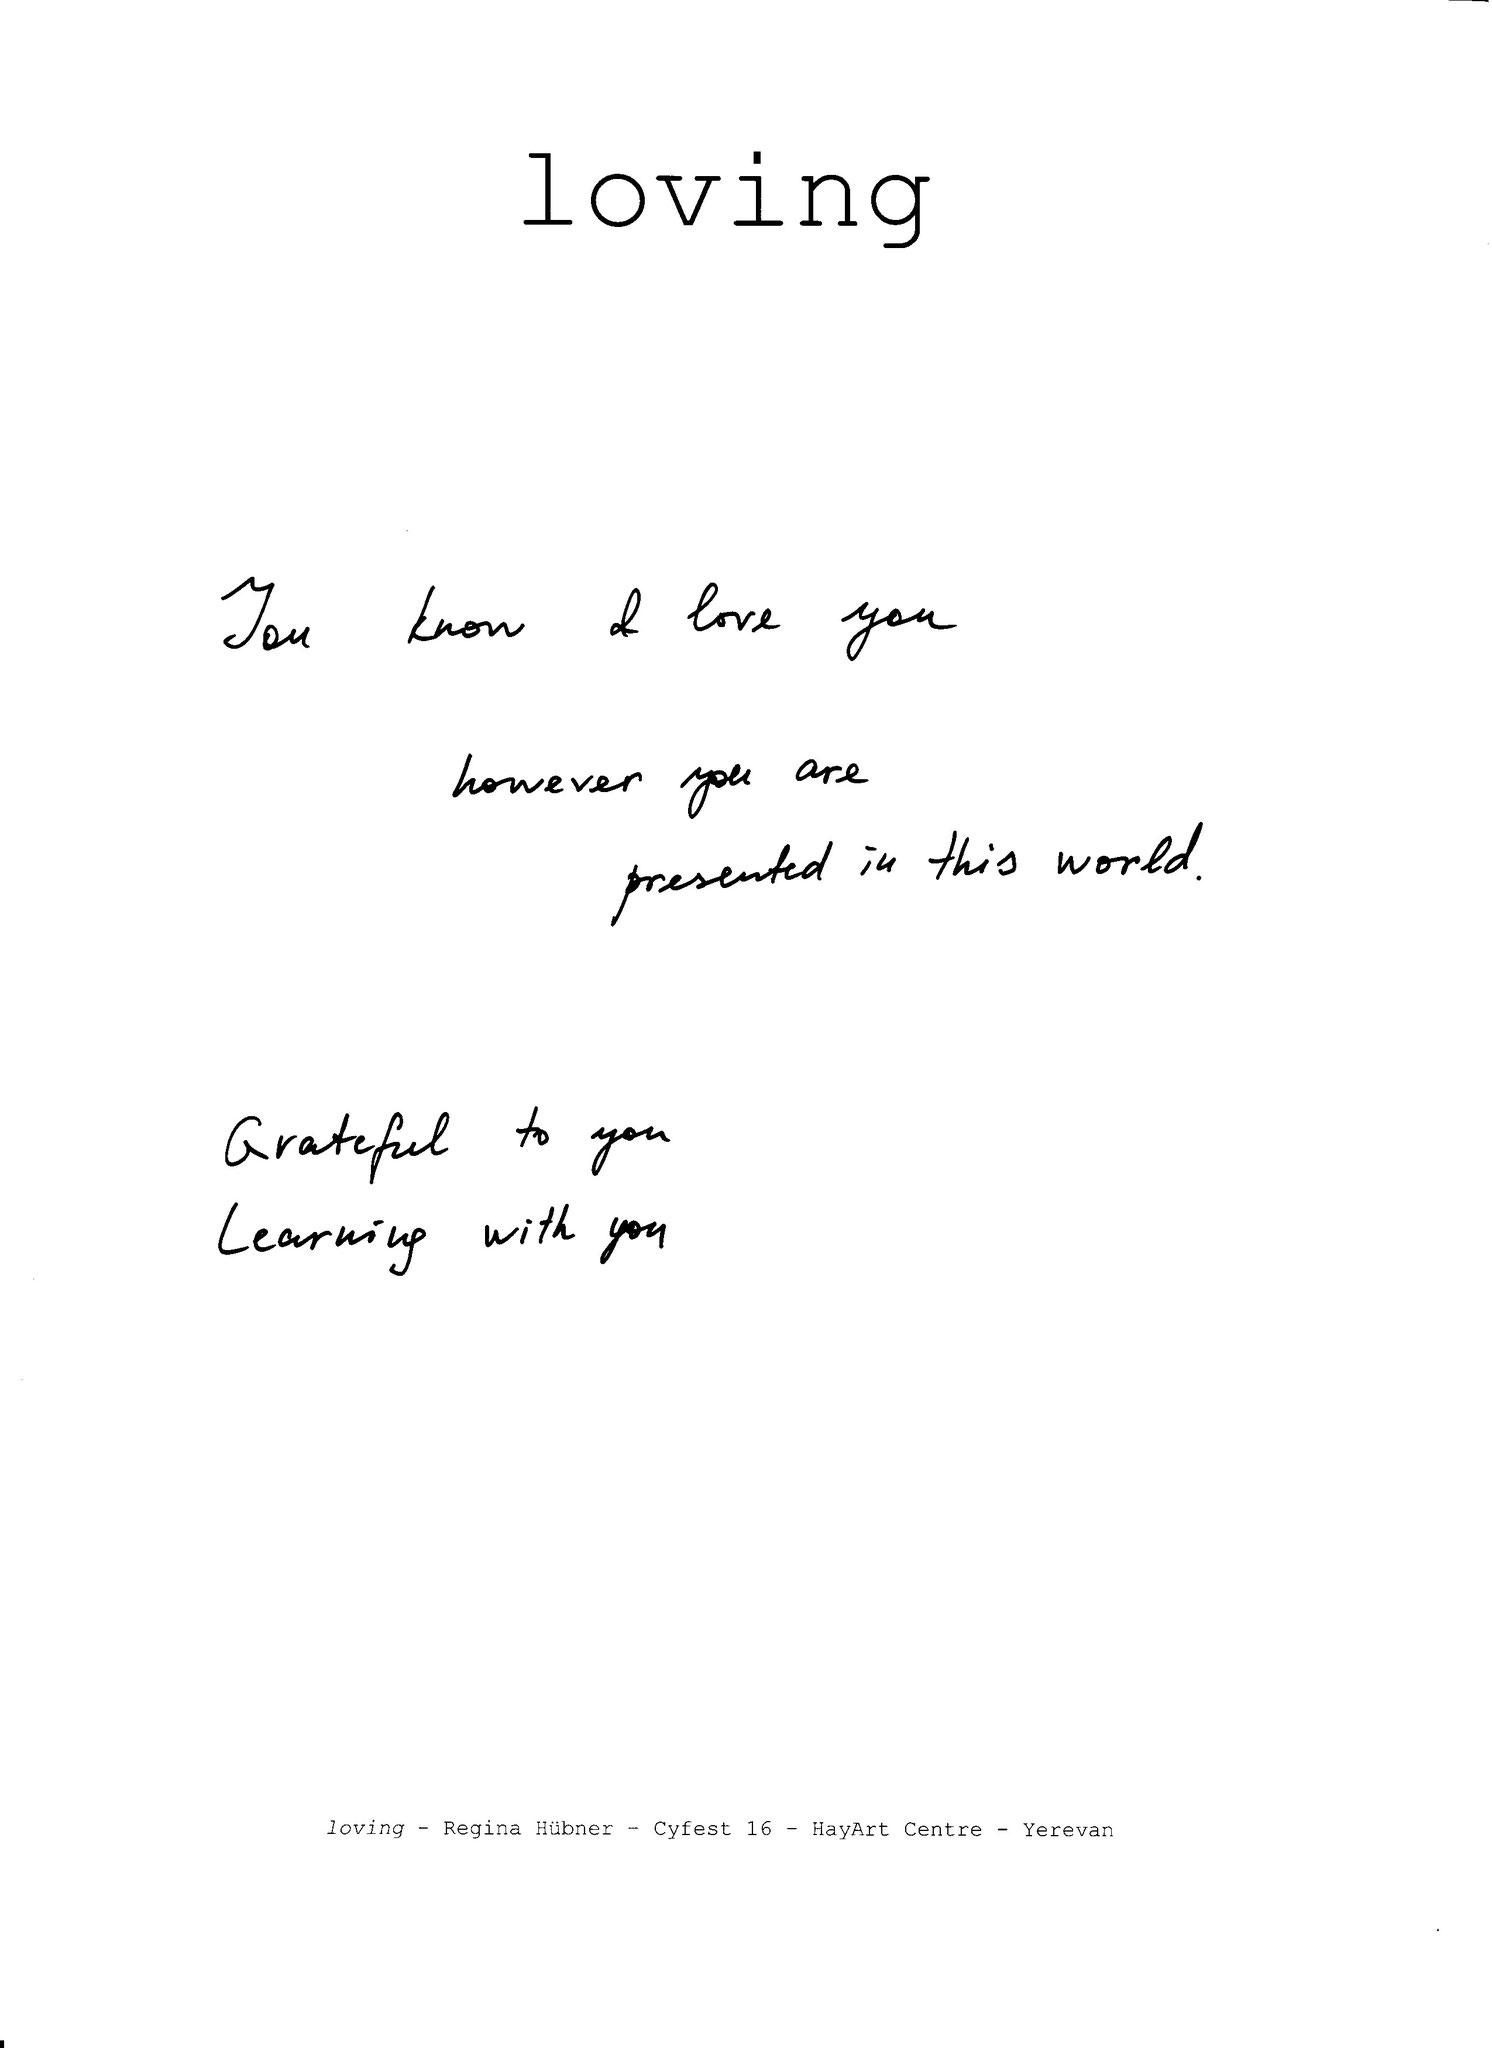 loving
You know I love you
however you are
presented in this world.
Grateful to you
Learning with you
loving - Regina Hübner - Cyfest 16 - HayArt Centre - Yerevan